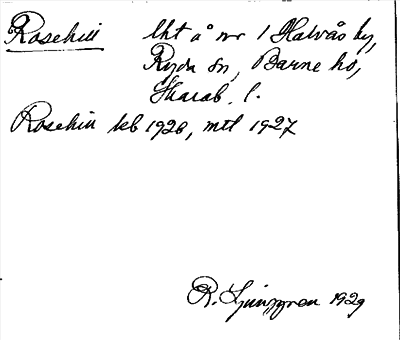 Rosehill lht å nr 1 Halvås by,
Ryda sn, Barne hd,
Skarab. l.
Rosehill kb 1928, mtl 1927
R. Ljunggren 1929